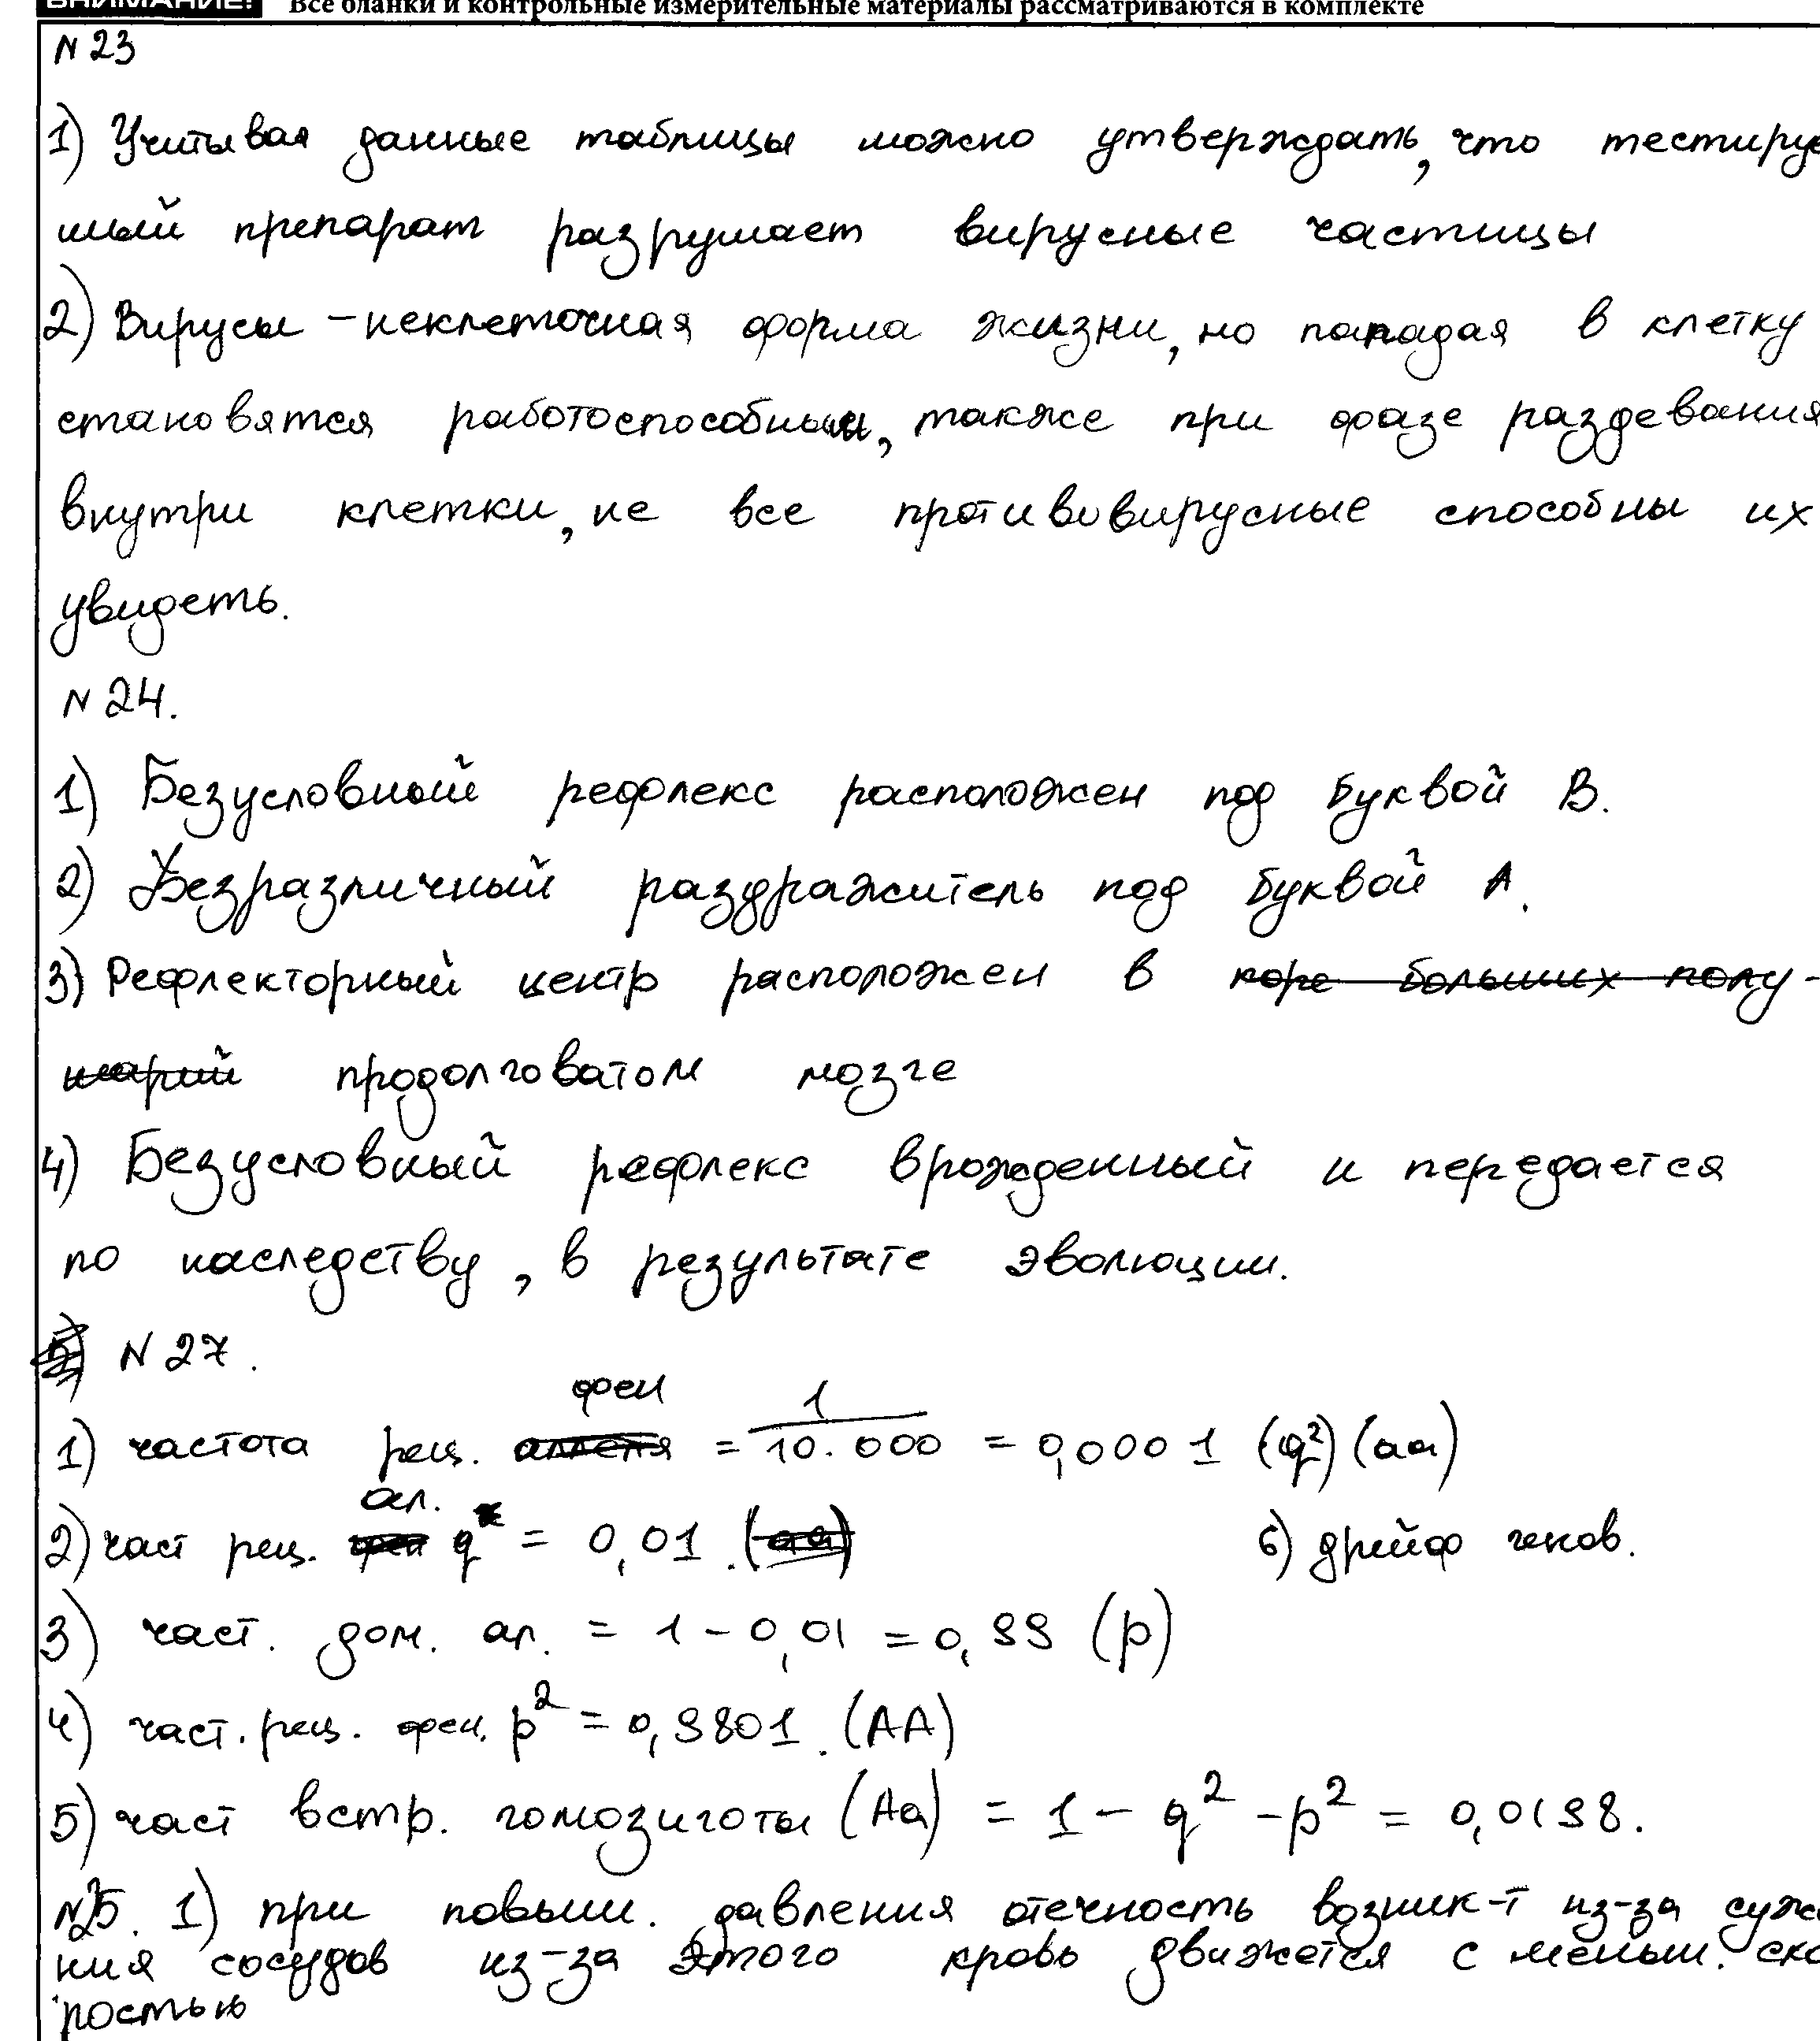 ВНИМАНИЕ! Все бланки и контрольные измерительные материалы рассматриваются в комплекте
N 23
1) Учитывая данные таблицы можно утверждать, что тестируе
мый препарат разрушает вирусные частицы
2) Вирусы - неклеточная форма жизни, но попадая в клетку
становятся работоспособными, также при фазе раздевания
внутри клетки, не все противовирусные способны их
увидеть.
N 24.
1) Безусловный рефлекс расположен под буквой В.
2) Безразличный раздражитель под буквой А.
3) Рефлекторный центр расположен в коре больших полу-
шарий продолговатом мозге
4) Безусловный рефлекс врожденный и передается
по наследству, в результате эволюции.
5) N 27.
фен
1) частота рец. аллеля = 1/10.000 = 0,0001 (q²) (аа)
ал.
2) част рец. фен q = 0,01. (аа)
6) дрейф генов.
3) част. дом. ал. = 1 - 0,01 = 0,99 (p)
4) част. рец. фен. p² = 0,9801. (АА)
5) част встр. гомозиготы (Аа) = 1 - q² - p² = 0,0198.
N25. 1) при повыш. давления отечность возник-т из-за суже
ния сосудов из-за этого кровь движется с меньш. ско
ростью